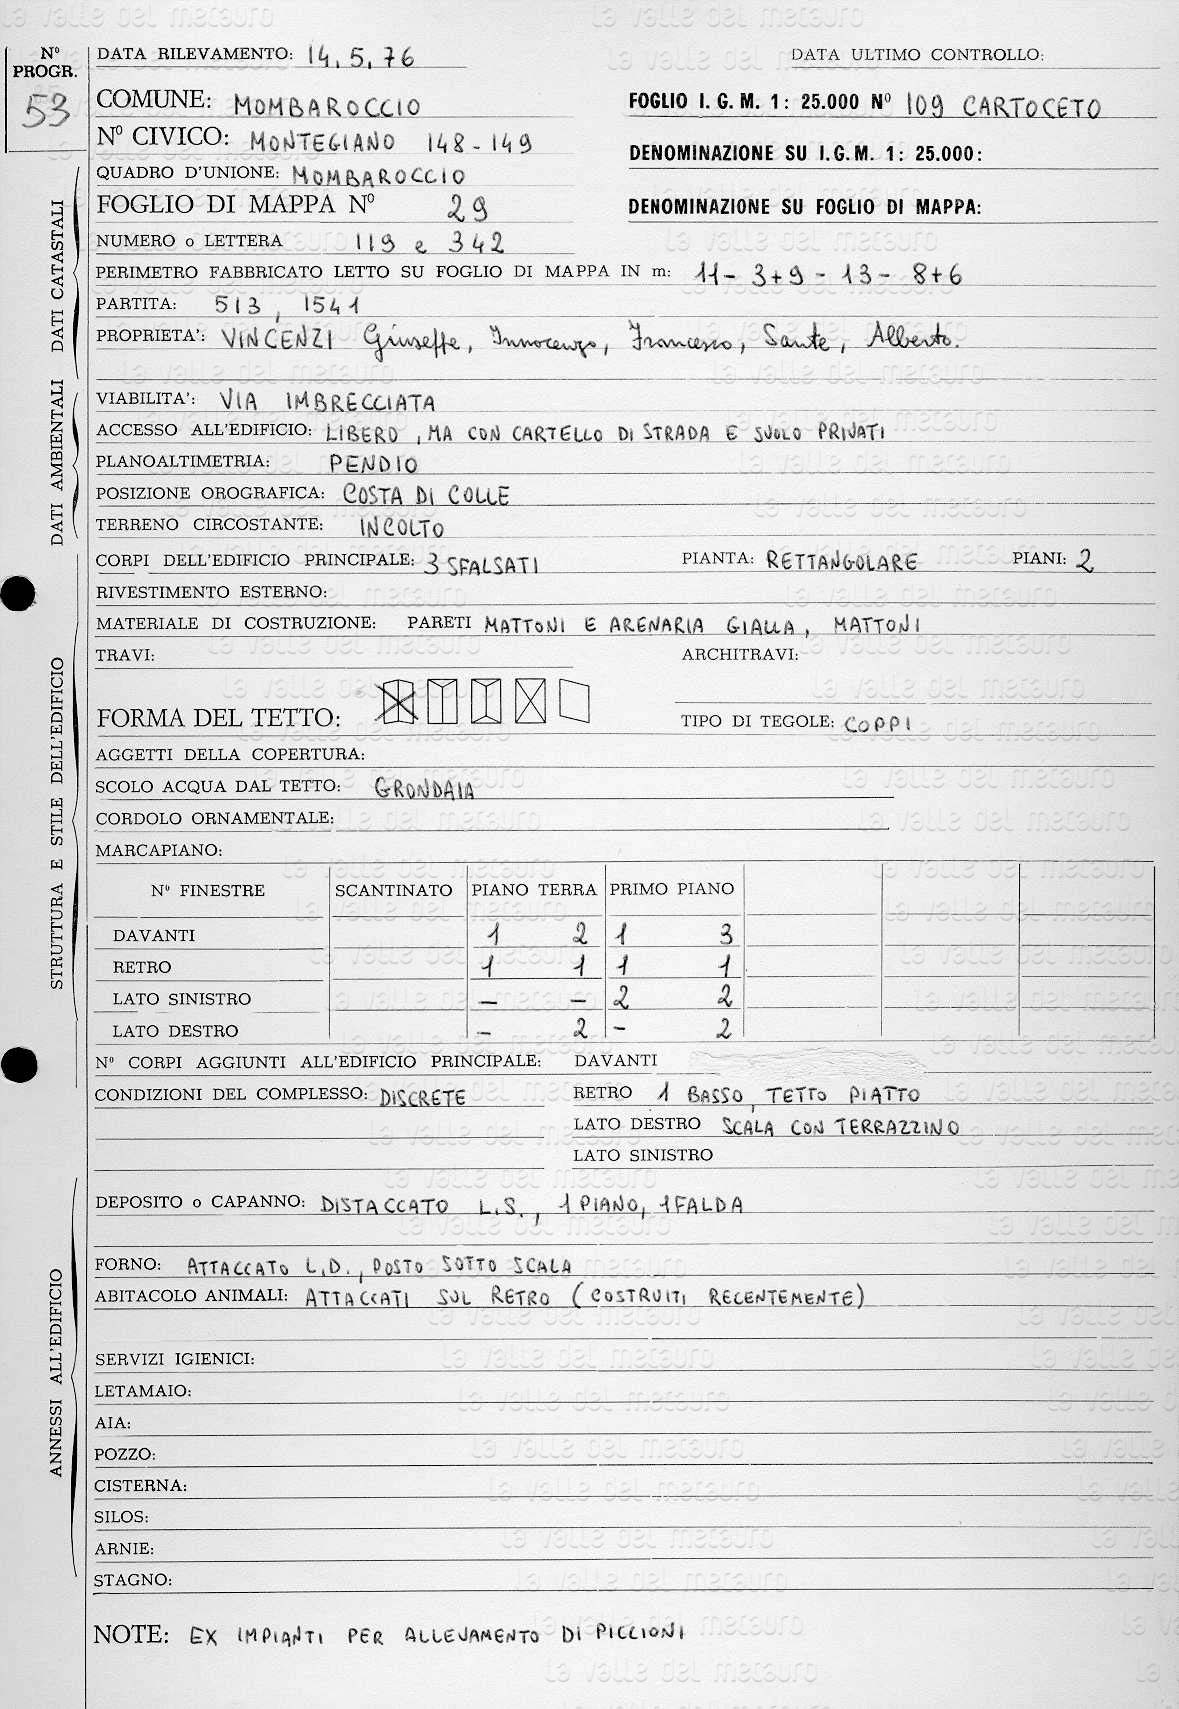 la valle del metauro
Nº PROGR. 53
DATA RILEVAMENTO: 14.5.76 DATA ULTIMO CONTROLLO:
COMUNE: MOMBAROCCIO FOGLIO I.G.M. 1: 25.000 Nº 109 CARTOCETO
Nº CIVICO: MONTEGIANO 148-149
DENOMINAZIONE SU I.G.M. 1: 25.000:
QUADRO D'UNIONE: MOMBAROCCIO
FOGLIO DI MAPPA Nº 29 DENOMINAZIONE SU FOGLIO DI MAPPA:
DATI CATASTALI
NUMERO o LETTERA 119 e 342
PERIMETRO FABBRICATO LETTO SU FOGLIO DI MAPPA IN m: 11- 3+9 - 13- 8+6
PARTITA: 513, 1541
PROPRIETA': VINCENZI Giuseffe, Innocenzo, Francesco, Sante, Alberto.
DATI AMBIENTALI
VIABILITA': VIA IMBRECCIATA
ACCESSO ALL'EDIFICIO: LIBERO, MA CON CARTELLO DI STRADA E SUOLO PRIVATI
PLANOALTIMETRIA: PENDIO
POSIZIONE OROGRAFICA: COSTA DI COLLE
TERRENO CIRCOSTANTE: INCOLTO
STRUTTURA E STILE DELL'EDIFICIO
CORPI DELL'EDIFICIO PRINCIPALE: 3 SFALSATI PIANTA: RETTANGOLARE PIANI: 2
RIVESTIMENTO ESTERNO:
MATERIALE DI COSTRUZIONE: PARETI MATTONI E ARENARIA GIALLA, MATTONI
TRAVI: ARCHITRAVI:
FORMA DEL TETTO: TIPO DI TEGOLE: COPPI
AGGETTI DELLA COPERTURA:
SCOLO ACQUA DAL TETTO: GRONDAIA
CORDOLO ORNAMENTALE:
MARCAPIANO:
Nº FINESTRE SCANTINATO PIANO TERRA PRIMO PIANO
DAVANTI 1 2 1 3
RETRO 1 1 1 1
LATO SINISTRO - - 2 2
LATO DESTRO - 2 - 2
Nº CORPI AGGIUNTI ALL'EDIFICIO PRINCIPALE: DAVANTI
CONDIZIONI DEL COMPLESSO: DISCRETE RETRO 1 BASSO, TETTO PIATTO
LATO DESTRO SCALA CON TERRAZZINO
LATO SINISTRO
ANNESSI ALL'EDIFICIO
DEPOSITO o CAPANNO: DISTACCATO L.S., 1 PIANO, 1 FALDA
FORNO: ATTACCATO L.D., POSTO SOTTO SCALA
ABITACOLO ANIMALI: ATTACCATI SUL RETRO (COSTRUITI RECENTEMENTE)
SERVIZI IGIENICI:
LETAMAIO:
AIA:
POZZO:
CISTERNA:
SILOS:
ARNIE:
STAGNO:
NOTE: EX IMPIANTI PER ALLEVAMENTO DI PICCIONI